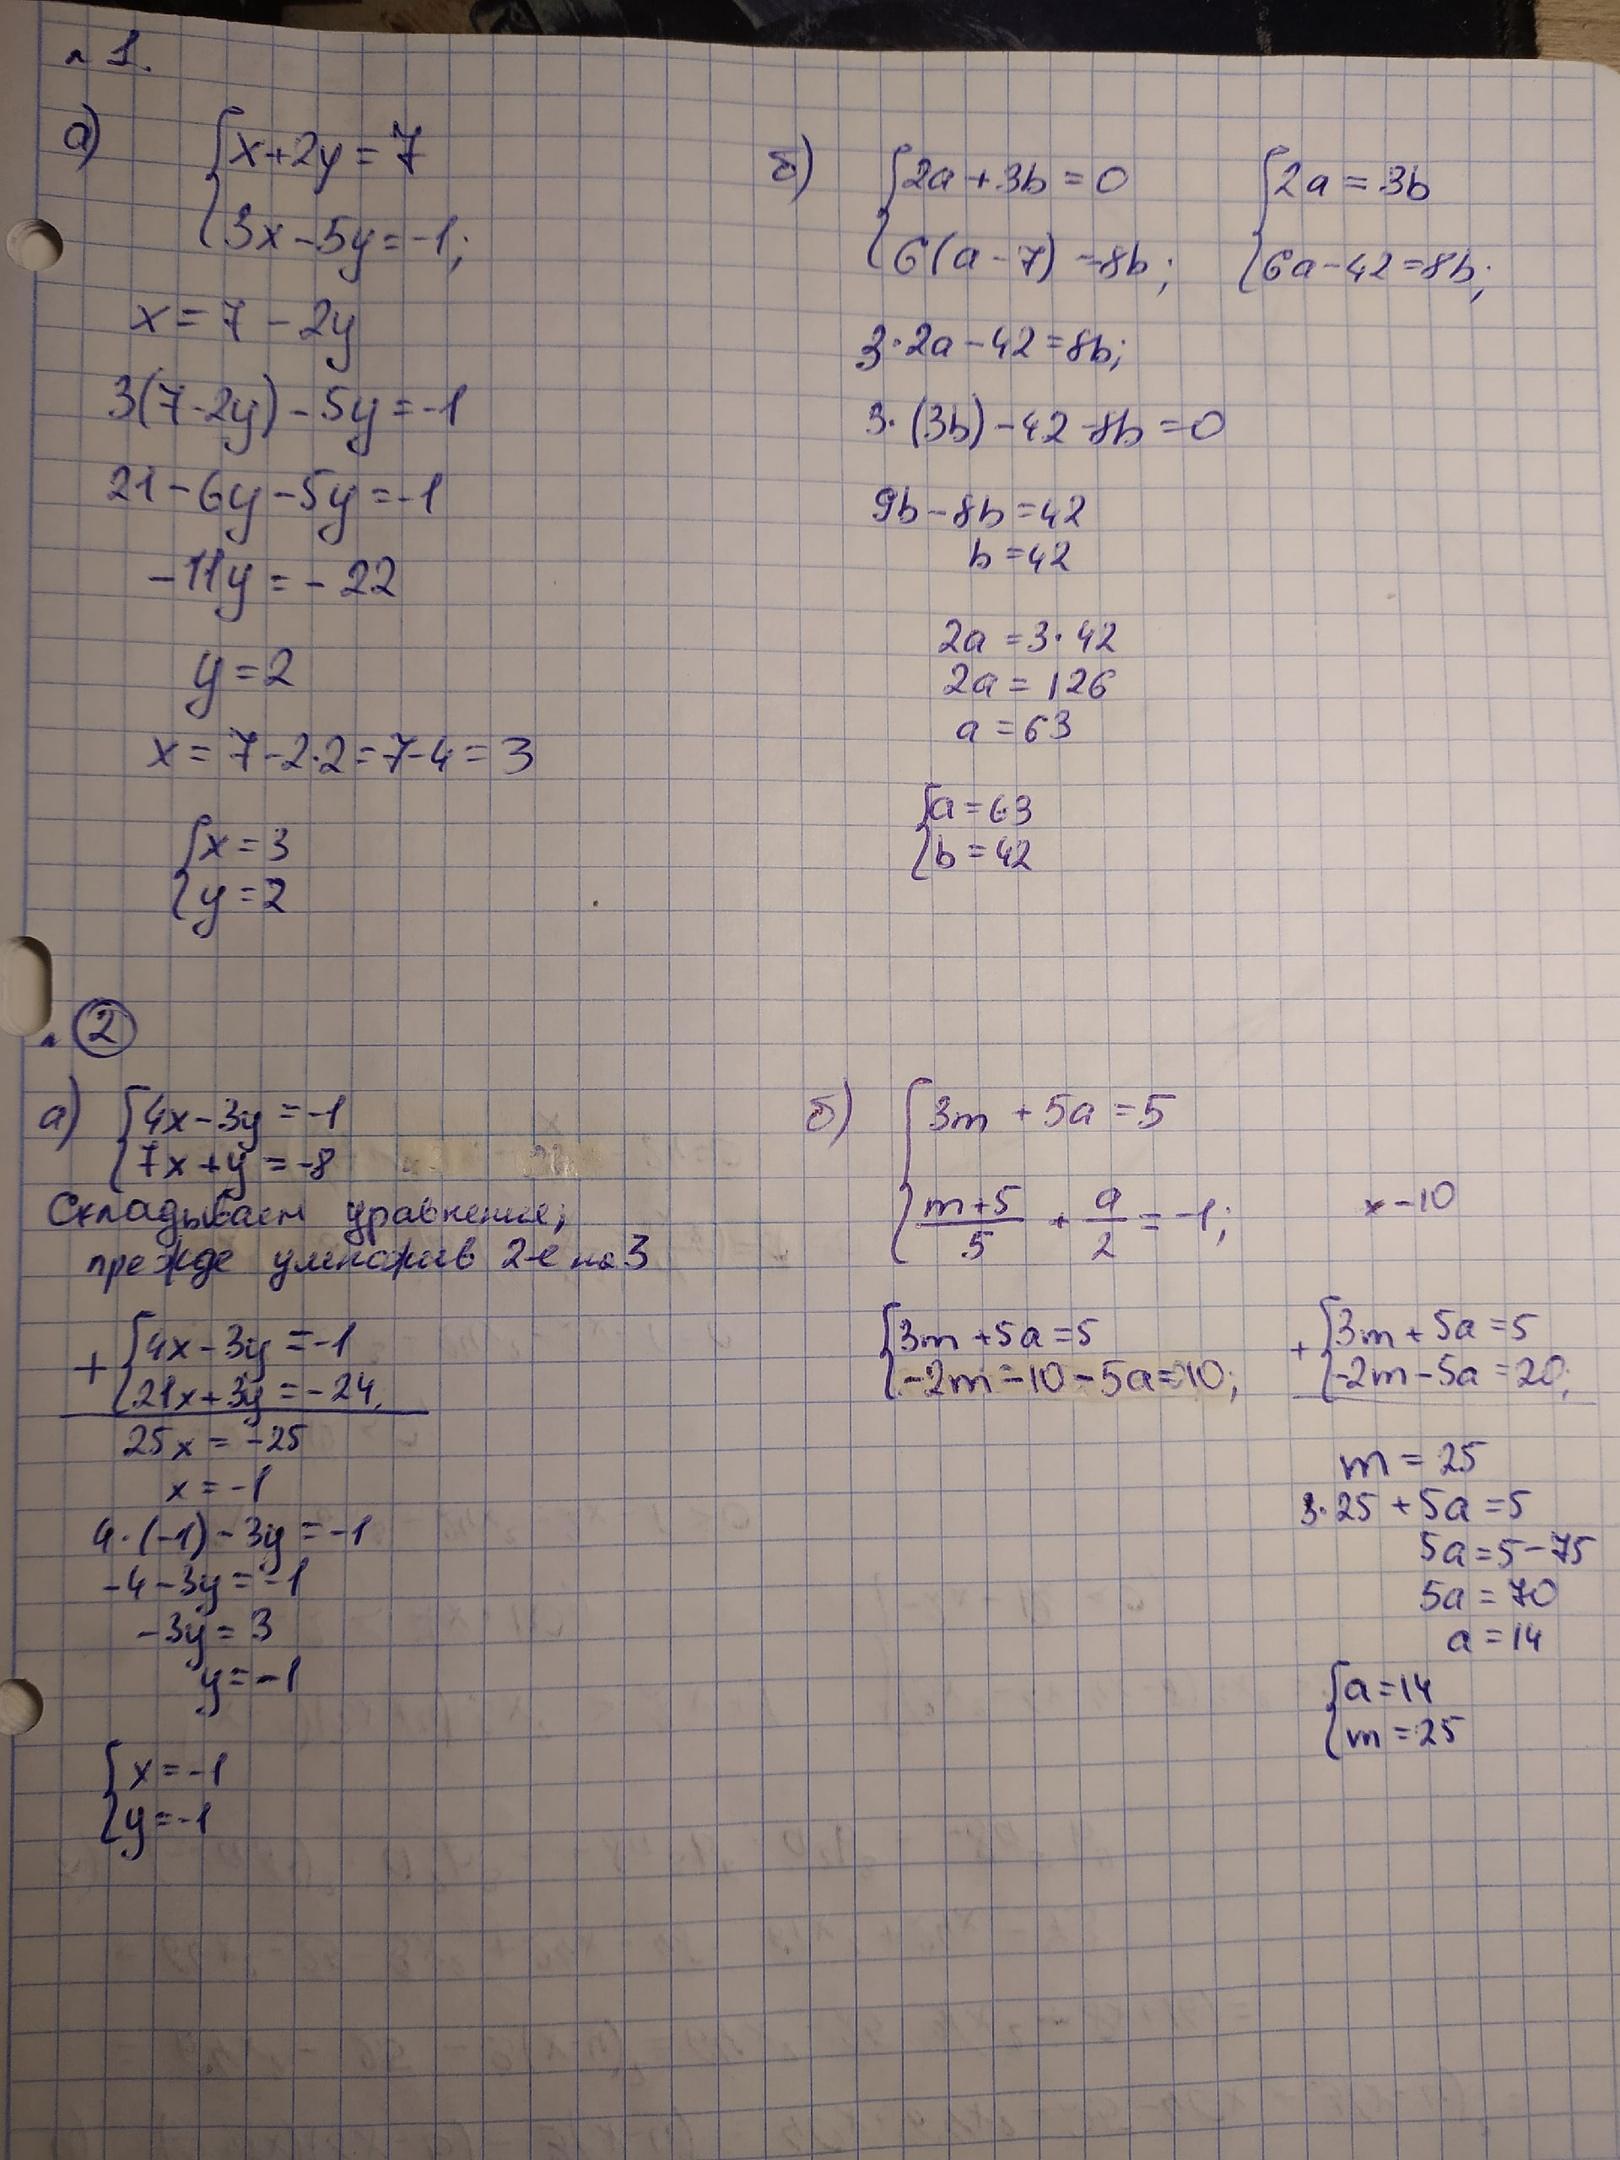 № 1.
а)
{x+2y=7
{3x-5y=-1;
x=7-2y
3(7-2y)-5y=-1
21-6y-5y=-1
-11y=-22
y=2
x=7-2·2=7-4=3
{x=3
{y=2
б)
{2a+3b=0
{6(a-7)-8b;
{2a=3b
{6a-42=8b;
3·2a-42=8b;
3·(3b)-42-8b=0
9b-8b=42
b=42
2a=3·42
2a=126
a=63
{a=63
{b=42
№ 2
а)
{4x-3y=-1
{7x+y=-8
Складываем уравнение,
прежде умножив 2-е на 3
+
{4x-3y=-1
{21x+3y=-24,
25x=-25
x=-1
4·(-1)-3y=-1
-4-3y=-1
-3y=3
y=-1
{x=-1
{y=-1
б)
{3m+5a=5
{(m+5)/5 + a/2 = -1;
x-10
{3m+5a=5
{-2m-10-5a=10;
+
{3m+5a=5
{-2m-5a=20;
m=25
3·25+5a=5
5a=5-75
5a=70
a=14
{a=14
{m=25